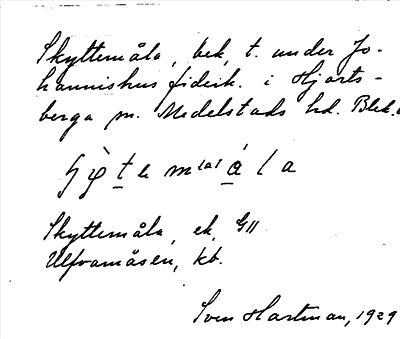 Skyttemåla, bek, t. under Jo-
hannishus fideik. i Hjorts-
berga sn. Medelstads hd. Blek.
Skyttemåla, ek, GII
Ulfvamåsen, kb.
Sven Hartman, 1929